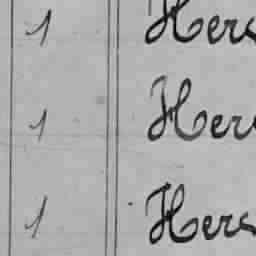 1 Hers
1 Hers
1 Hers